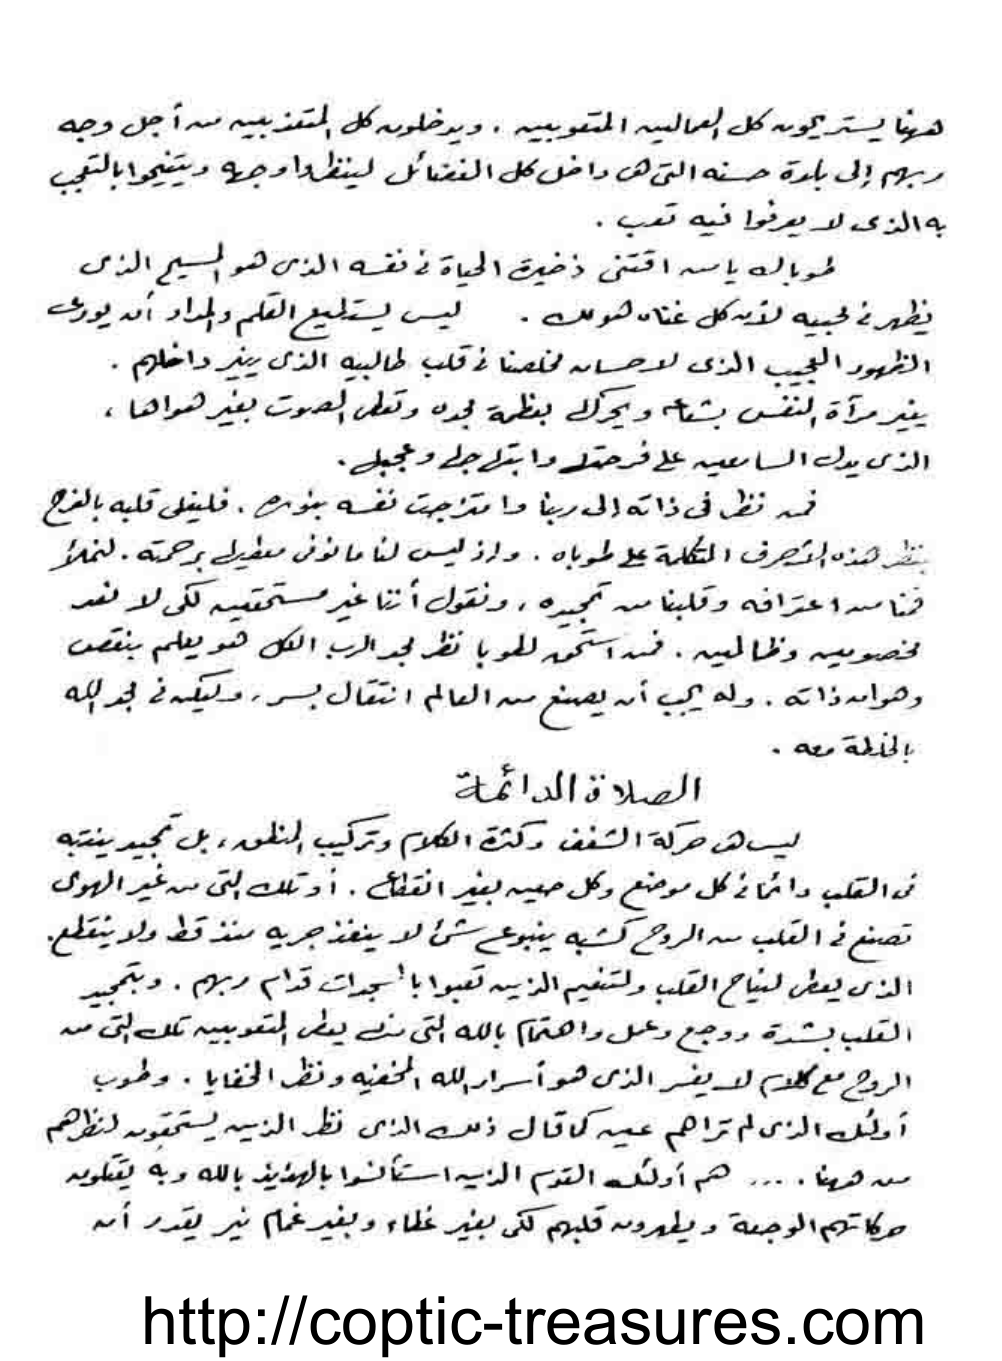 ههنا يستريحون كل العمالين المتعوبين . ويدخلون كل المتعذبين من أجل وجه
ربهم إلى بلدة حسنه التى هى داخل كل الفضائل لينظروا وجهه ويتنيحوا بالتعجب
به الذى لا يعرفوا فيه تعب .
طوباك يا من اقتنى ذخيرة الحياة فى نفسه الذى هو المسيح الذى
يظهر فى محبيه لأن كل غناه هو لك . ليس يستطيع القلم والمداد أن يورى
الظهور العجيب الذى لاحسان مخلصنا فى قلب طالبيه الذى ينير داخلهم .
ينير مرآة النفس بشعاعه ويحرك بعظمة مجده وتعطى الصوت بغير هواها ،
الذى يدل السامعين على فرحته وابتهاجه وعجبه .
فمن نظر فى ذاته إلى ربنا وامتزجت نفسه بنوره . فليغلى قلبه بالفرح
بنظر هذه الأحرف المتكلمة على طوباه . وإذ ليس لنا ما نوفى معطينا برحمته . لنملأ
فمنا من اعترافه وقلبنا من تمجيده ، ونقول أننا غير مستحقين لكى لا نعد
مخصومين وظالمين . فمن استحق لطوبا نظر مجد الرب الكل هو يعلم بنقص
وهوان ذاته . وله يجب أن يصنع من العالم انتقال بسر ، ويكن فى مجد الله
بالخلطة معه .
الصلاة الدائمة
ليس هى حركة الشفف وكثرة الكلام وتركيب المنطق ، بل تمجيد ينتبه
فى القلب دائما فى كل موضع وكل حين بغير انقطاع . أو تلك التى من غير الهوى
تصنع فى القلب من الروح كشبه ينبوع شئ لا ينفذ جريه منذ قط ولا ينقطع .
الذى يعطى لنياح القلب ولتنعيم الذين تعبوا بالسجدات قدام ربهم . وبتمجيد
القلب بشدة ووجع وعمل واهتمام بالله التى منه يعطى المتعوبين تلك التى من
الروح مع كلام لا يفسر الذى هو أسرار الله المخفيه ونظر الخفايا . وطوب
أولئك الذى لم تراهم عين كما قال ذلك الذى نظر الذين يستحقون لنظرهم
من ههنا . ... هم أولئك القوم الذين استأنسوا بالهذيذ بالله وبه يقتلون
حركاتهم الوجعة ويطهرون قلبهم لكى بغير غطاء وبغير غمام نير يقدر أن
http://coptic-treasures.com